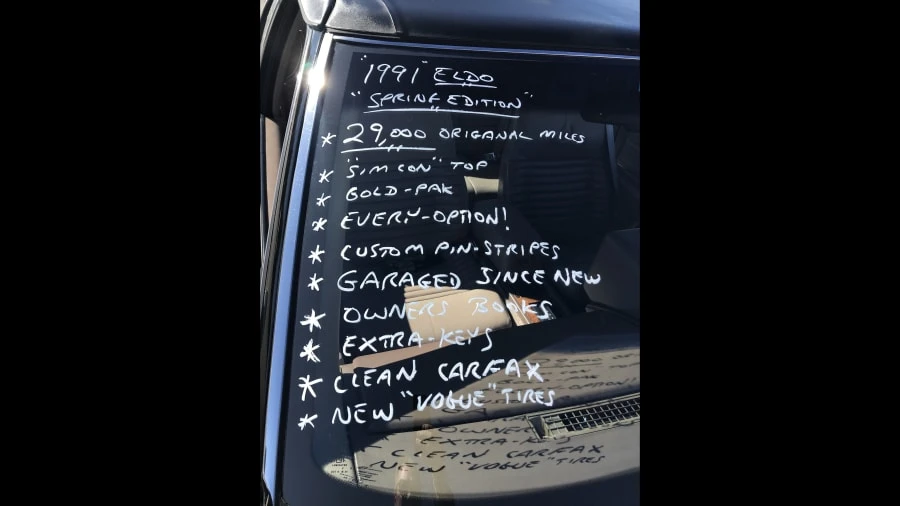 "1991" ELDO
"SPRING EDITION"
* 29,000 ORIGANAL MILES
* "SIMCON" TOP
* GOLD-PAK
* EVERY-OPTION!
* CUSTOM PIN-STRIPES
* GARAGED SINCE NEW
* OWNERS BOOKS
* EXTRA-KEYS
* CLEAN CARFAX
* NEW "VOGUE" TIRES